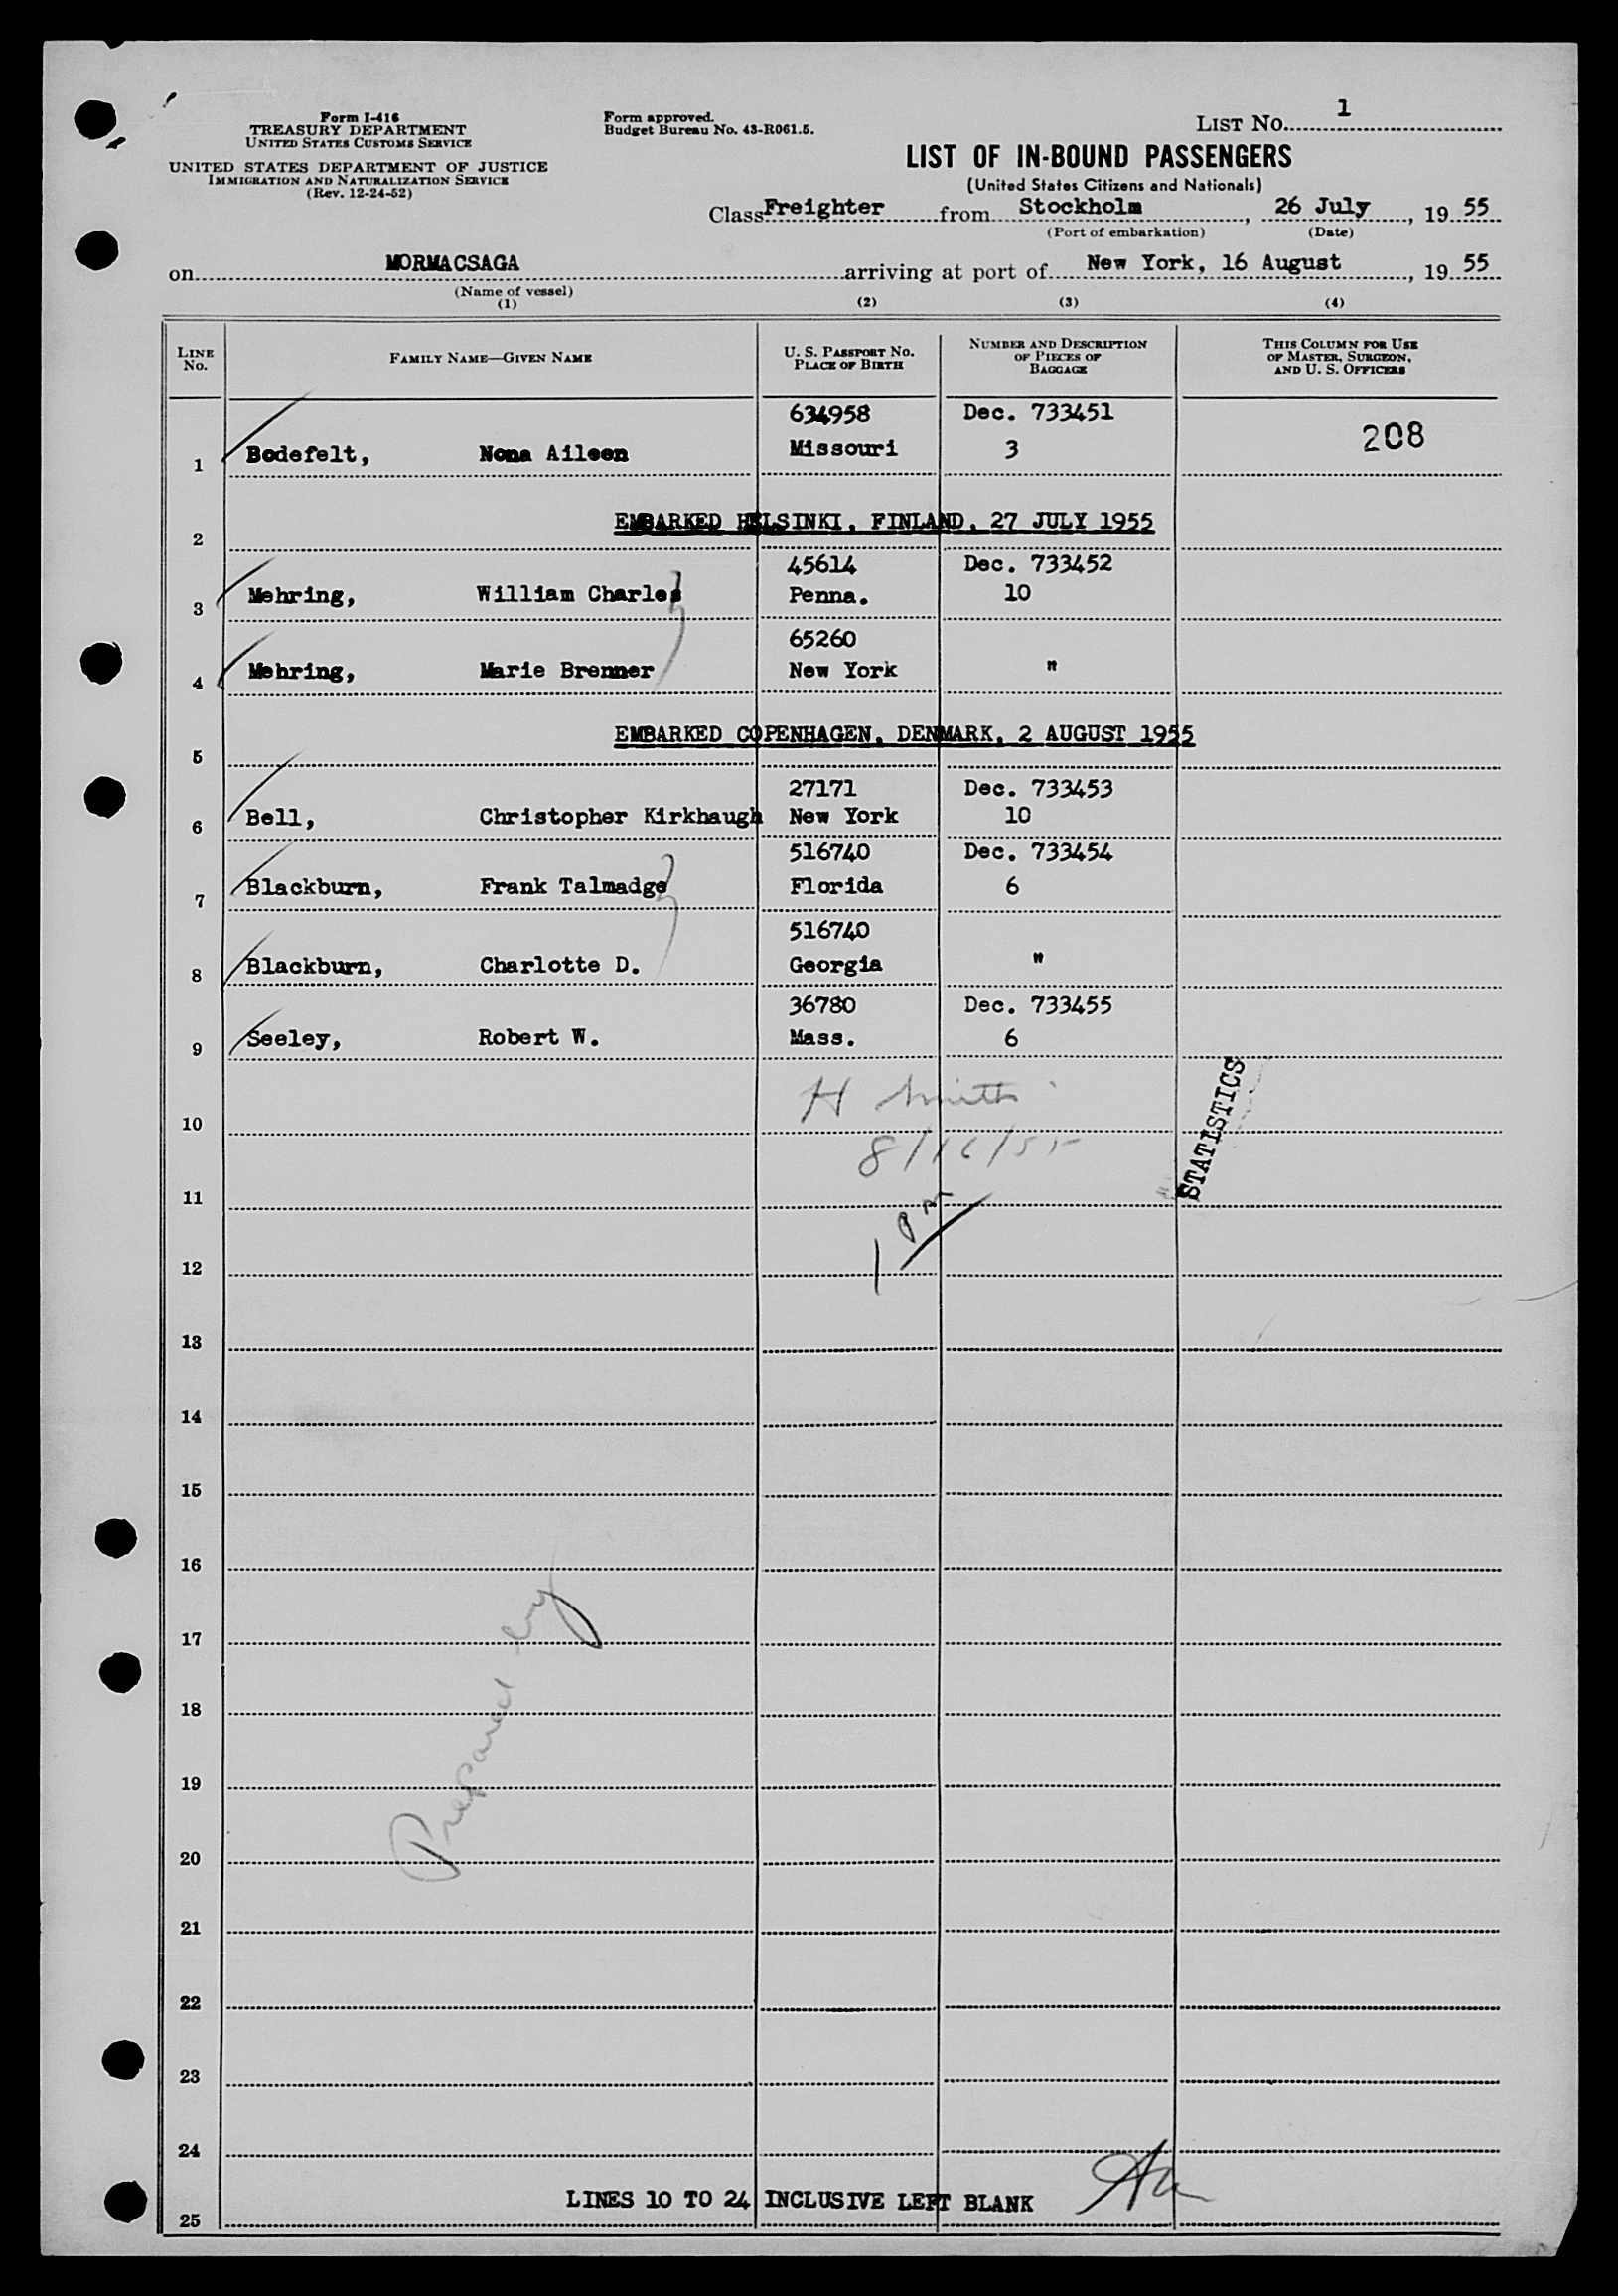 Form I-416
TREASURY DEPARTMENT
UNITED STATES CUSTOMS SERVICE
UNITED STATES DEPARTMENT OF JUSTICE
IMMIGRATION AND NATURALIZATION SERVICE
(Rev. 12-24-52)
Form approved.
Budget Bureau No. 43-R061.5.
LIST No. 1
LIST OF IN-BOUND PASSENGERS
(United States Citizens and Nationals)
Class Freighter from Stockholm, 26 July, 19 55
(Port of embarkation) (Date)
on MORMACSAGA arriving at port of New York, 16 August, 19 55
(Name of vessel)
(1) (2) (3) (4)
LINE No. FAMILY NAME—GIVEN NAME U. S. PASSPORT No. PLACE OF BIRTH NUMBER AND DESCRIPTION OF PIECES OF BAGGAGE THIS COLUMN FOR USE OF MASTER, SURGEON, AND U. S. OFFICERS
634958 Dec. 733451
1 Bodefelt, Nona Aileen Missouri 3 208
2 EMBARKED HELSINKI, FINLAND, 27 JULY 1955
45614 Dec. 733452
3 Mehring, William Charles Penna. 10
65260
4 Mehring, Marie Brenner New York "
5 EMBARKED COPENHAGEN, DENMARK, 2 AUGUST 1955
27171 Dec. 733453
6 Bell, Christopher Kirkhaugh New York 10
516740 Dec. 733454
7 Blackburn, Frank Talmadge Florida 6
516740
8 Blackburn, Charlotte D. Georgia "
36780 Dec. 733455
9 Seeley, Robert W. Mass. 6
H Smith
STATISTICS
10
8/16/55
11
1 pm
12
13
14
15
16
17
Prepared by
18
19
20
21
22
23
24
LINES 10 TO 24 INCLUSIVE LEFT BLANK
25